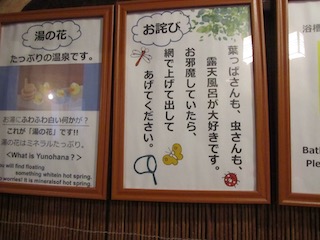 湯の花
たっぷりの温泉です。
お湯にふわふわ白い何かが？
これが「湯の花」です!!
湯の花はミネラルたっぷり。
<What is Yunohana？>
will find floating
something whitein hot spring.
worries! It is mineralsof hot spring
お詫び
葉っぱさんも、虫さんも、
露天風呂が大好きです。
お邪魔していたら、
網で上げて出して
あげてください。
浴槽
Bath
Please